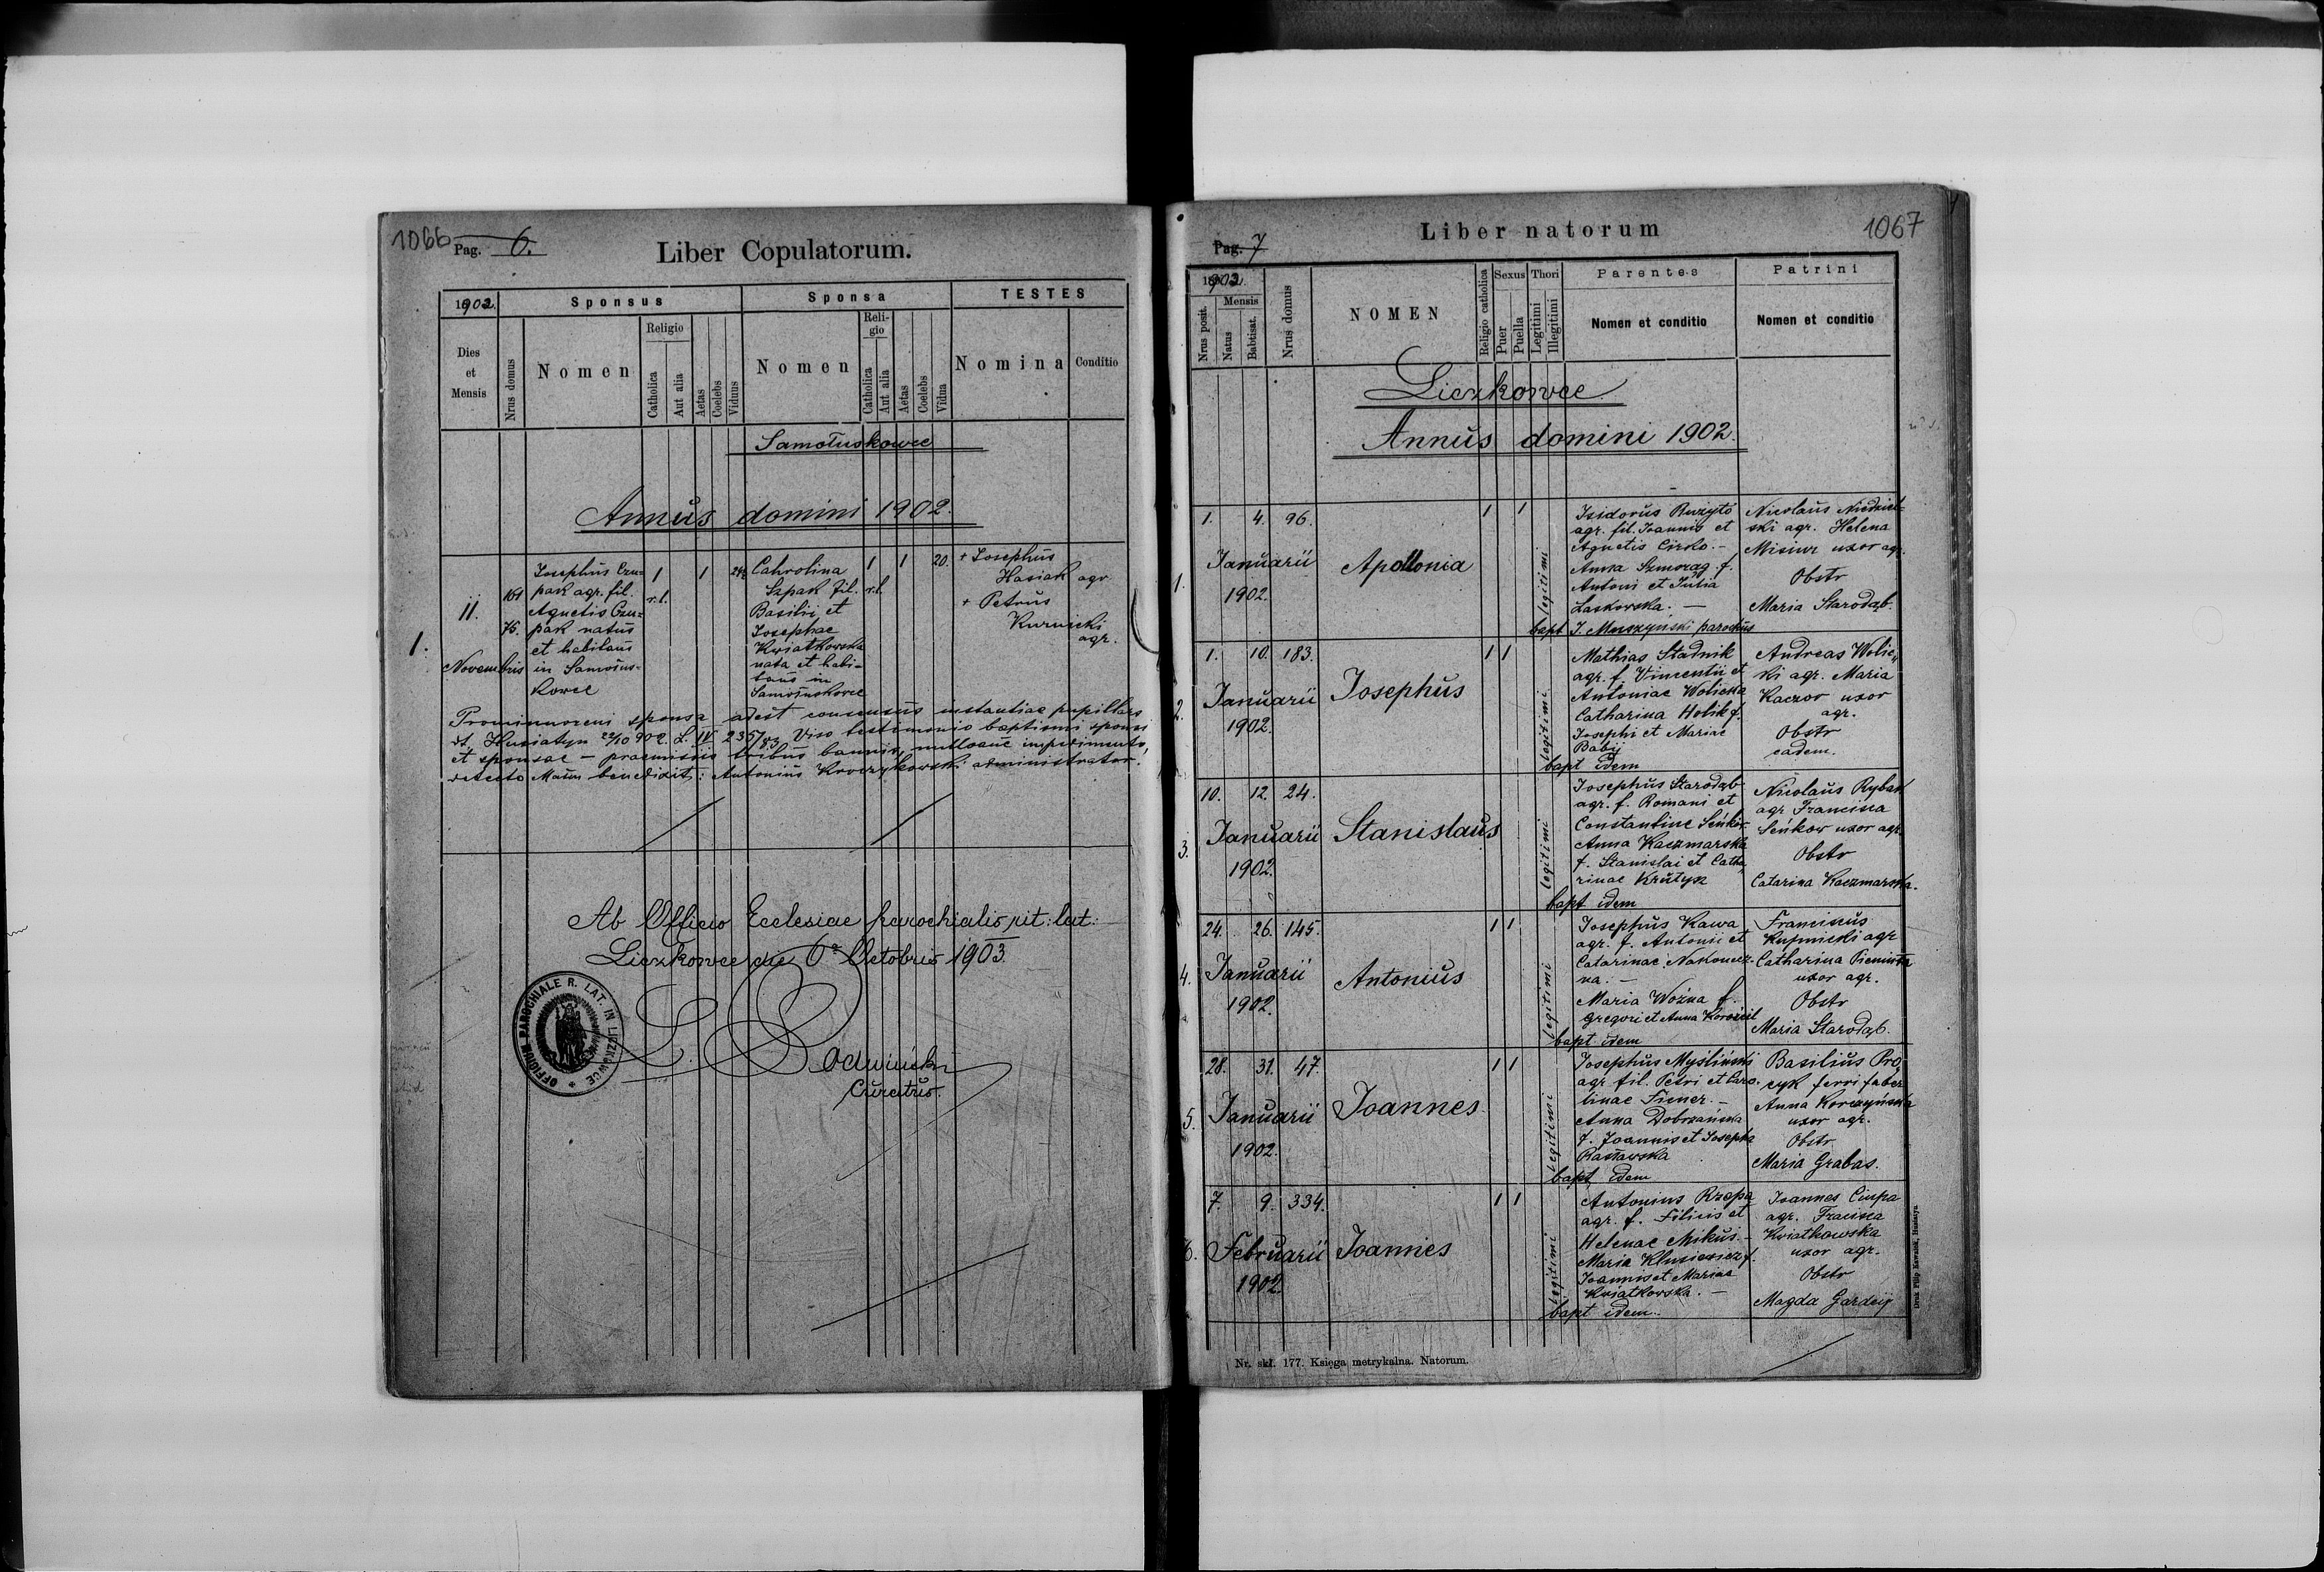 1066
Pag. 6.
Liber Copulatorum.
1902.
Sponsus
Sponsa
TESTES
Dies et Mensis
Nrus domus
Nomen
Religio
Catholica
Aut alia
Aetas
Coelebs
Viduus
Nomen
Religio
Catholica
Aut alia
Aetas
Coelebs
Vidua
Nomina
Conditio
Samołuskowce
Annus domini 1902.
1.
11.
Novembris
161
76.
Josephus Czu=
pak agr. fil.
Agnetis Czu=
pak natus
et habitans
in Samołus-
kowce
1
r.l.
1
24½
Cahrolina
Szpak fil.
Basilii et
Josephae
Kwiatkowska
nata et habi-
tans in
Samołuskowce
1
r.l.
1
20.
+ Josephus
Hasiak agr
+ Petrus
Kurnicki
agr.
Prominoreni sponsa adest consensus instantiae pupillars
dt. Husiatyn 22/10 902. L. IV 235/83 Viso testimonio baptismi sponsi
et sponsae – praemissis tribus bannis, nulloque impedimento,
detecto Matrim benedixit: Antonius Kroczykowski administrator.
Ab Officio Ecclesiae parochialis rit: lat:
Liczkowce die 6ta Octobris 1903.
OFFICIUM PAROCHIALE R. LAT. IN LICZKOWCE
Curatus.
1067
Pag. 7
Liber natorum
1902.
Nrus posit.
Mensis
Natus
Babtisat.
Nrus domus
NOMEN
Religio catholica
Sexus
Puer
Puella
Thori
Legitimi
Illegitimi
Parentes
Nomen et conditio
Patrini
Nomen et conditio
Liczkowce
Annus domini 1902.
1.
1. 4. 96.
Januarii
1902.
Apollonia
1 1
legitimi
Isidorus Buzyto
agr. fil. Joannis et
Agnetis Cirko. –
Anna Szmorag f.
Antoni et Julia
Laskowska. –
bapt J. Muszynski parochus
Nicolaus Niedziel=
ski agr. Helena
Misiur uxor agr.
Obstr
Maria Starodąb.
2.
1. 10. 183.
Januarii
1902.
Josephus
1 1
legitimi
Mathias Stadnik
agr. f. Vincentii et
Antoniae Wolicka
Catharina Holik f.
Josephi et Mariae
Babij
bapt idem
Andreas Wolic„
ki agr. Maria
Kaczor uxor
agr.
Obstr
eadem.
3.
10. 12. 24.
Januarii
1902.
Stanislaus
legitimi
Josephus Starodąb
agr. f. Romani et
Constantine Seńków
Anna Kaczmarska
f. Stanislai et Catha„
rinae Krutyn
bapt idem
Nicolaus Rybak
agr Francisca
Seńkow uxor agr.
Obstr
Catarina Kaczmarska.
4.
24. 26. 145.
Januarii
1902.
Antonius
1 1
legitimi
Josephus Kawa
agr. f. Antonii et
Catarinae Nakonecz-
na. –
Maria Woźna f.
Gregori et Anna Korczil
bapt idem
Franciscus
Kupnicki agr
Catharina Pieniuta
uxor agr.
Obstr
Maria Starodąb.
5.
28. 31. 47.
Januarii
1902.
Joannes
1 1
legitimi
Josephus Myśliński
agr. fil. Petri et Caro-
linae Ficner. –
Anna Dobrzańska
f. Joannis et Josepha
Bastawska
bapt idem
Basilius Pro„
cyk ferri faber
Anna Korczyńska
uxor agr.
Obstr
Maria Grabas.
6.
7. 9. 334.
Februarii
1902
Joannes
1 1
legitimi
Antonius Rzepa
agr. f. Filius et
Helenae Mikus. –
Maria Klusiewicz f.
Joannis et Mariae
Kwiatkowska. –
bapt idem.
Joannes Ciupa
agr. Francisca
Kwiatkowska
uxor agr.
Obstr
Magda Gardcij
Nr. skł. 177. Księga metrykalna. Natorum.
Druk Filip Kawalek, Husiatyn